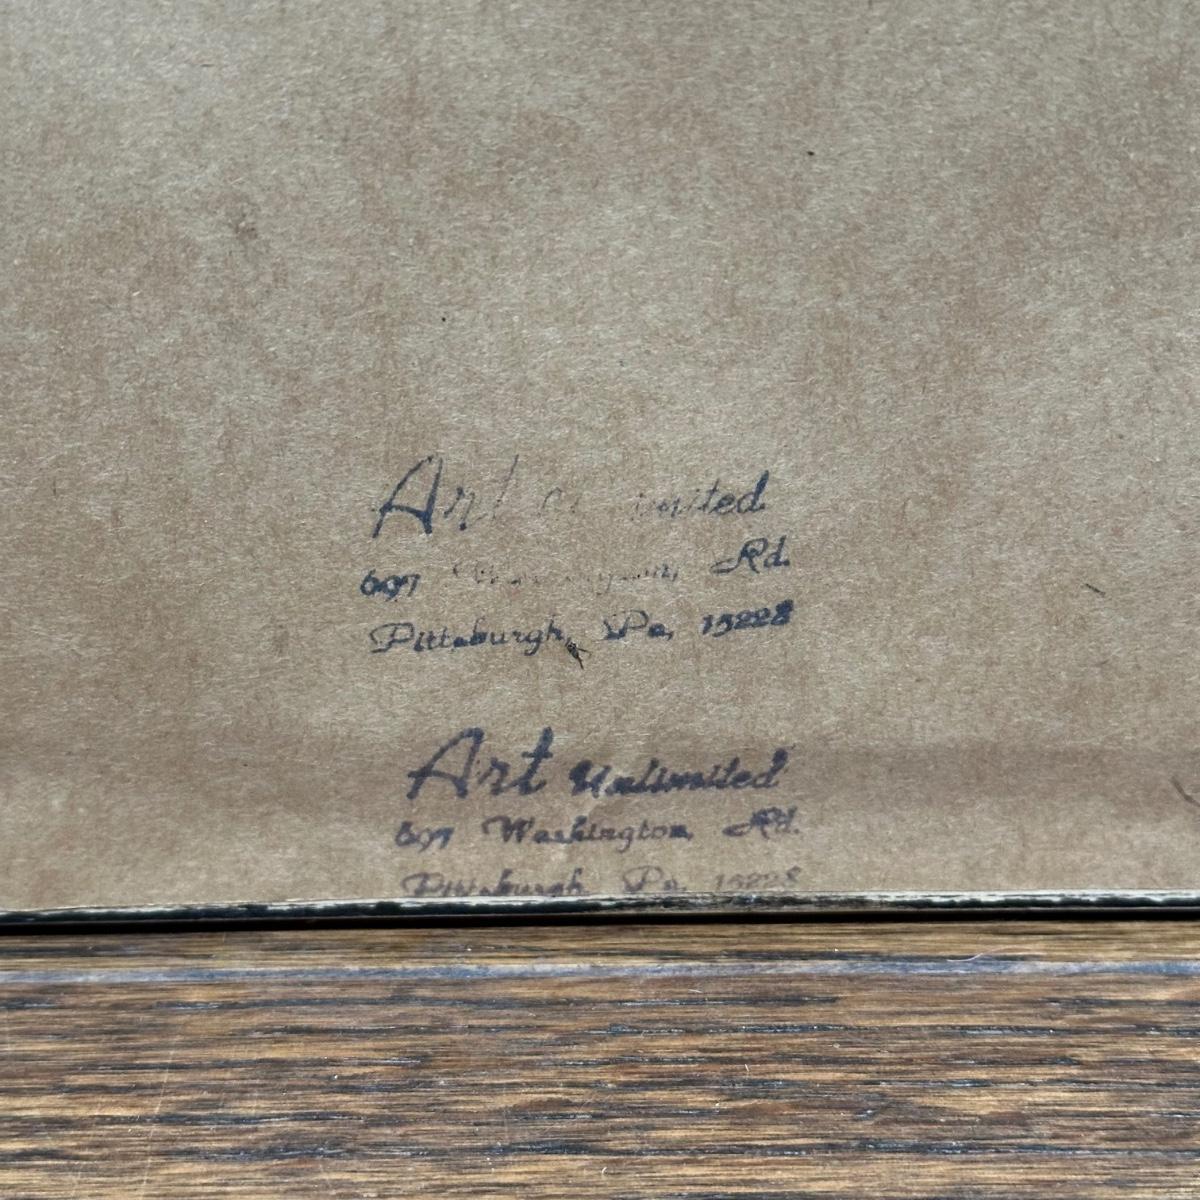 Art Unlimited
697 Washington Rd.
Pittsburgh, Pa. 15228
Art Unlimited
697 Washington Rd.
Pittsburgh, Pa. 15228